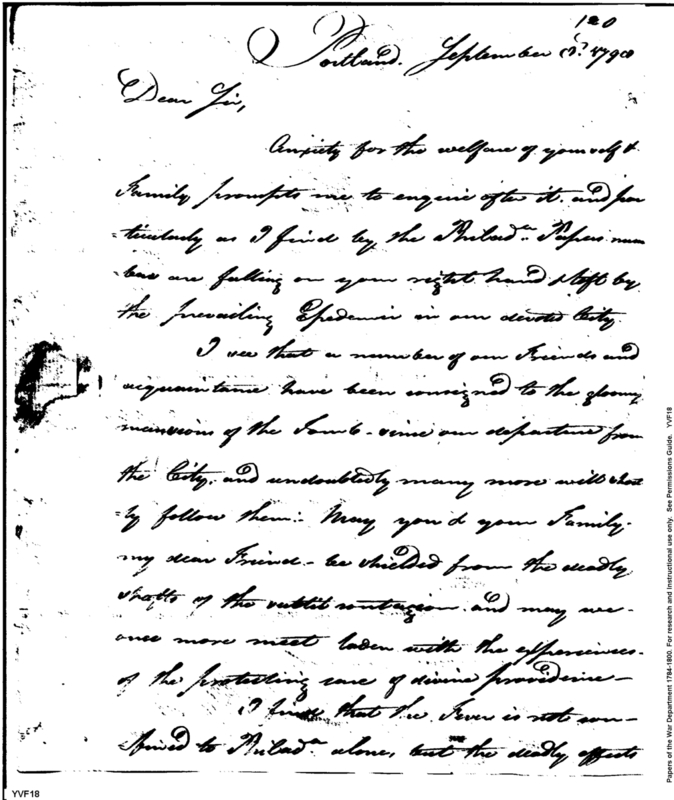 120
Portland. September 3d. 1798
Dear Sir,
Anxiety for the welfare of yourself &
Family prompts me to enquire after it. and par
=ticularly as I find by the Philada. Papers num
bers are falling on your right hand & left by
the prevailing Epedemic in our devoted City.
I see that a number of our Friends and
acquaintance have been consigned to the gloomy
mansions of the Tomb - since our departure from
the City, and undoubtedly many more will short
ly follow them:. May you & your Family -
my dear Friend - be shielded from the deadly
shafts of the subtil contagion. and may we -
once more meet laden with the experiences
of the protecting care of divine providence -
I find that the Fever is not con -
=fined to Philada. alone, but the deadly effects
Papers of the War Department 1784-1800. For research and instructional use only. See Permissions Guide. YVF18
YVF18